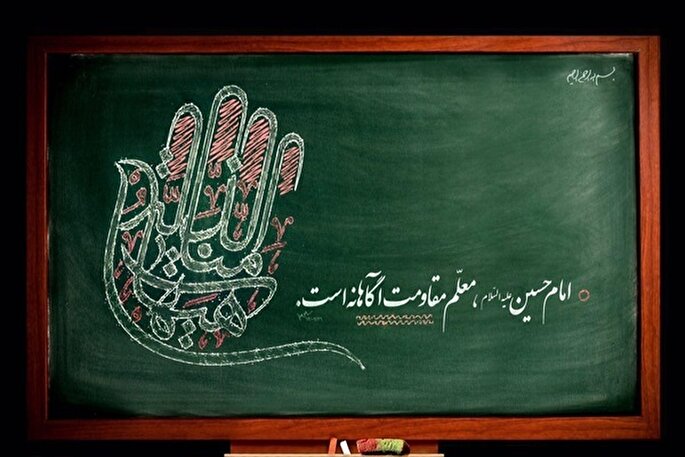 بسم الله الرحمن الرحیم
هیهات منا الذلة
امام حسین علیه السلام، معلّم مقاومت آگاهانه است.